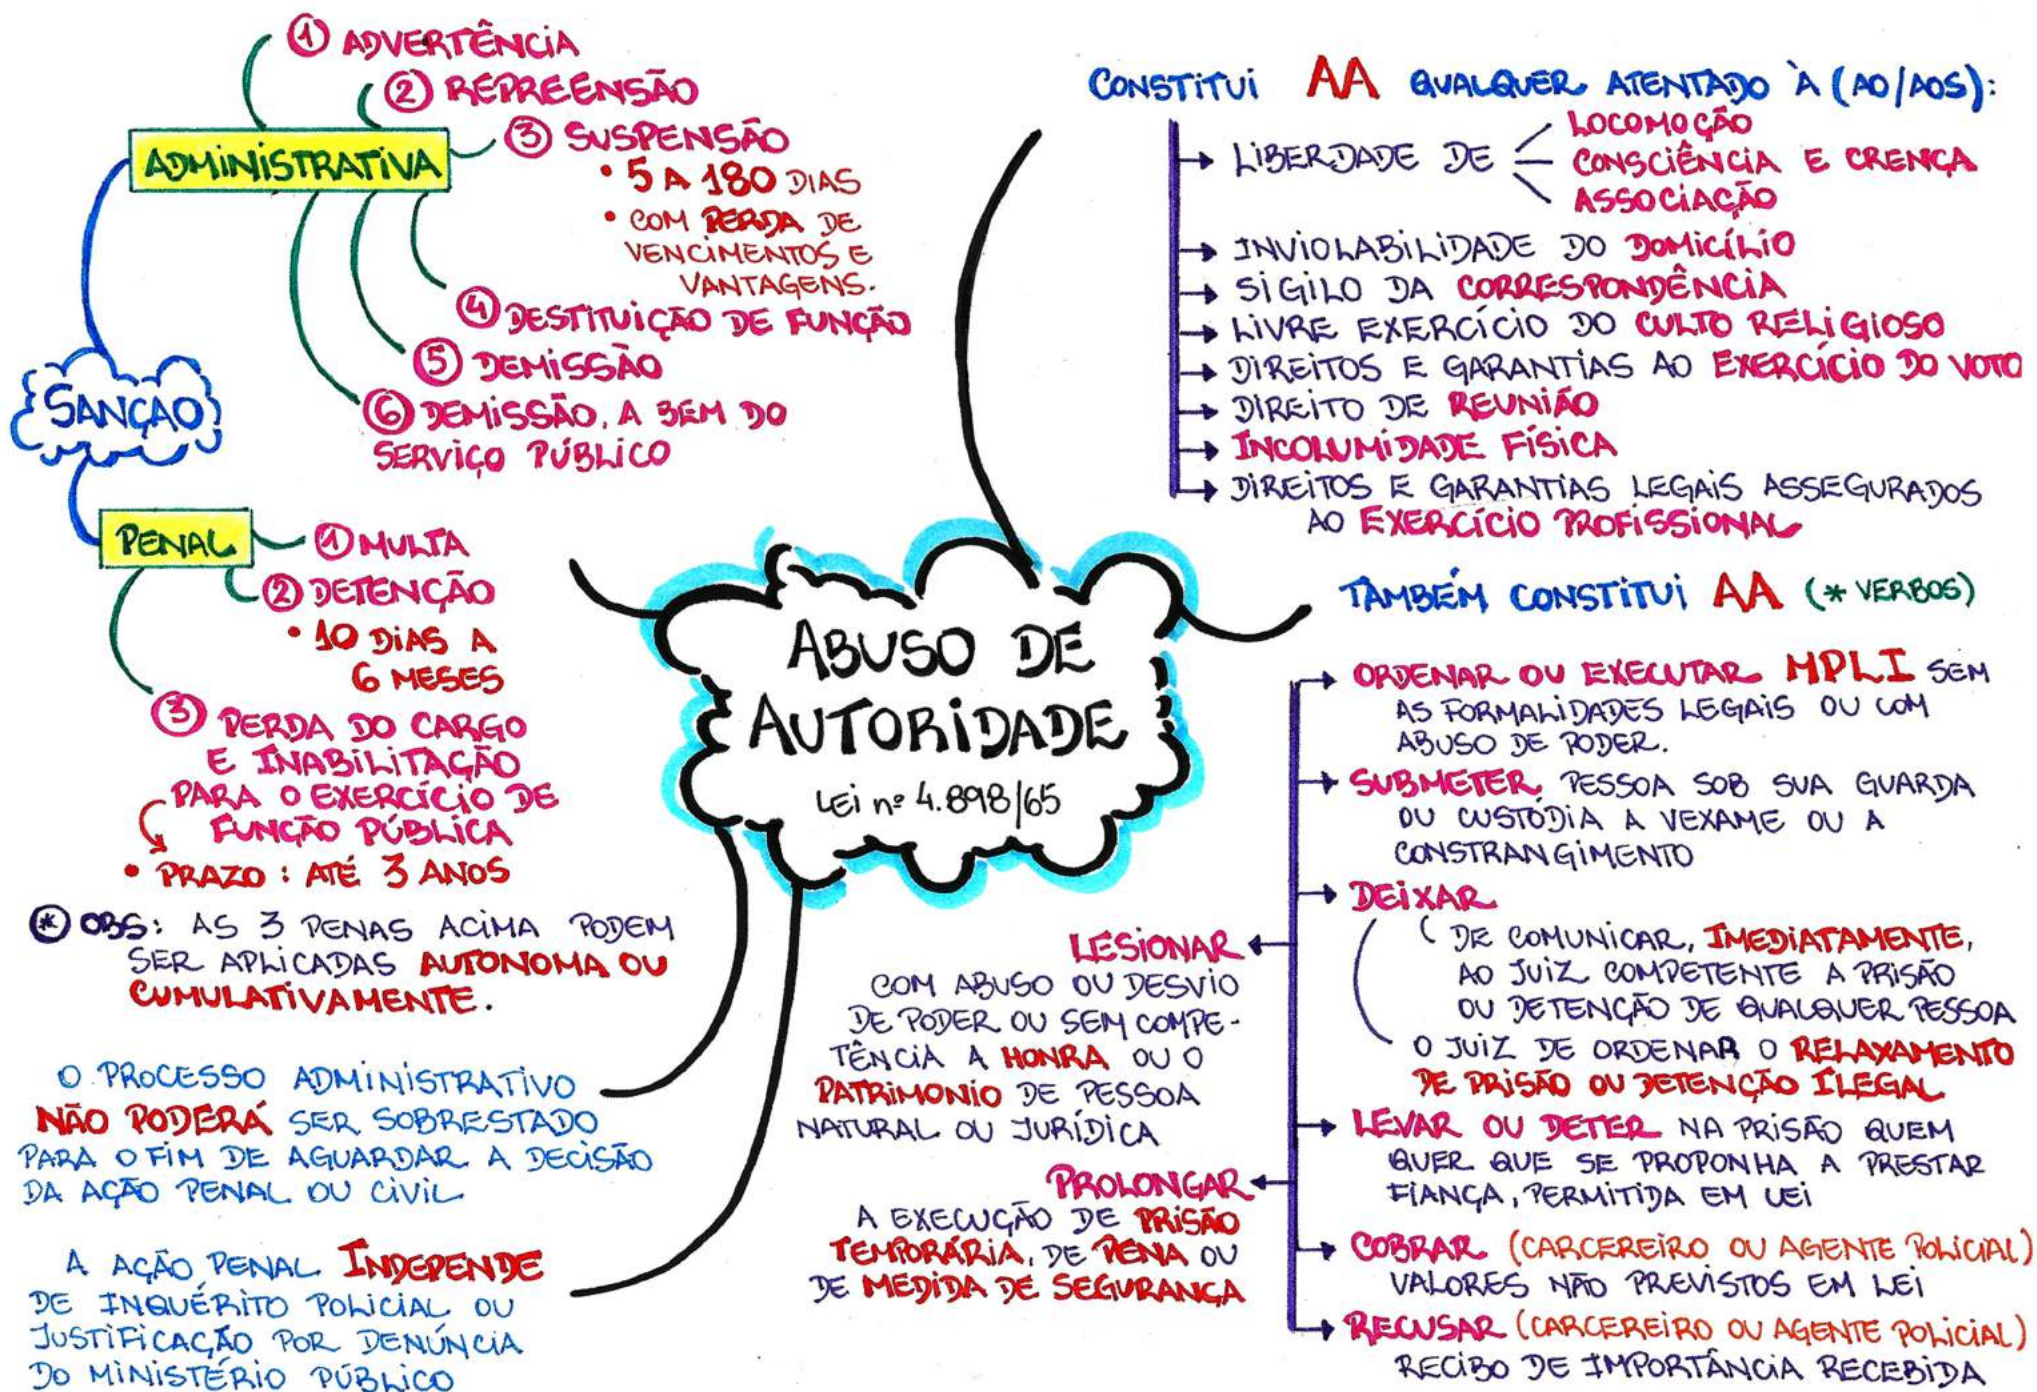 ① ADVERTÊNCIA
② REPREENSÃO
ADMINISTRATIVA
③ SUSPENSÃO
• 5 A 180 DIAS
• COM PERDA DE
VENCIMENTOS E
VANTAGENS.
④ DESTITUIÇÃO DE FUNÇÃO
⑤ DEMISSÃO
⑥ DEMISSÃO, A BEM DO
SERVIÇO PÚBLICO
SANÇÃO
PENAL
① MULTA
② DETENÇÃO
• 10 DIAS A
6 MESES
③ PERDA DO CARGO
E INABILITAÇÃO
PARA O EXERCÍCIO DE
FUNÇÃO PÚBLICA
• PRAZO: ATÉ 3 ANOS
* OBS: AS 3 PENAS ACIMA PODEM
SER APLICADAS AUTONOMA OU
CUMULATIVAMENTE.
O PROCESSO ADMINISTRATIVO
NÃO PODERÁ SER SOBRESTADO
PARA O FIM DE AGUARDAR A DECISÃO
DA AÇÃO PENAL OU CIVIL
A AÇÃO PENAL INDEPENDE
DE INQUÉRITO POLICIAL OU
JUSTIFICAÇÃO POR DENÚNCIA
DO MINISTÉRIO PÚBLICO
ABUSO DE
AUTORIDADE
LEI nº 4.898/65
CONSTITUI AA QUALQUER ATENTADO À (AO/AOS):
LIBERDADE DE
LOCOMOÇÃO
CONSCIÊNCIA E CRENÇA
ASSOCIAÇÃO
INVIOLABILIDADE DO DOMICÍLIO
SIGILO DA CORRESPONDÊNCIA
LIVRE EXERCÍCIO DO CULTO RELIGIOSO
DIREITOS E GARANTIAS AO EXERCÍCIO DO VOTO
DIREITO DE REUNIÃO
INCOLUMIDADE FÍSICA
DIREITOS E GARANTIAS LEGAIS ASSEGURADOS
AO EXERCÍCIO PROFISSIONAL
TAMBÉM CONSTITUI AA (* VERBOS)
ORDENAR OU EXECUTAR MPLI SEM
AS FORMALIDADES LEGAIS OU COM
ABUSO DE PODER.
SUBMETER PESSOA SOB SUA GUARDA
OU CUSTÓDIA A VEXAME OU A
CONSTRANGIMENTO
DEIXAR
DE COMUNICAR, IMEDIATAMENTE,
AO JUIZ COMPETENTE A PRISÃO
OU DETENÇÃO DE QUALQUER PESSOA
O JUIZ DE ORDENAR O RELAXAMENTO
DE PRISÃO OU DETENÇÃO ILEGAL
LEVAR OU DETER NA PRISÃO QUEM
QUER QUE SE PROPONHA A PRESTAR
FIANÇA, PERMITIDA EM LEI
COBRAR (CARCEREIRO OU AGENTE POLICIAL)
VALORES NÃO PREVISTOS EM LEI
RECUSAR (CARCEREIRO OU AGENTE POLICIAL)
RECIBO DE IMPORTÂNCIA RECEBIDA
LESIONAR
COM ABUSO OU DESVIO
DE PODER OU SEM COMPE-
TÊNCIA A HONRA OU O
PATRIMONIO DE PESSOA
NATURAL OU JURÍDICA
PROLONGAR
A EXECUÇÃO DE PRISÃO
TEMPORÁRIA, DE PENA OU
DE MEDIDA DE SEGURANÇA